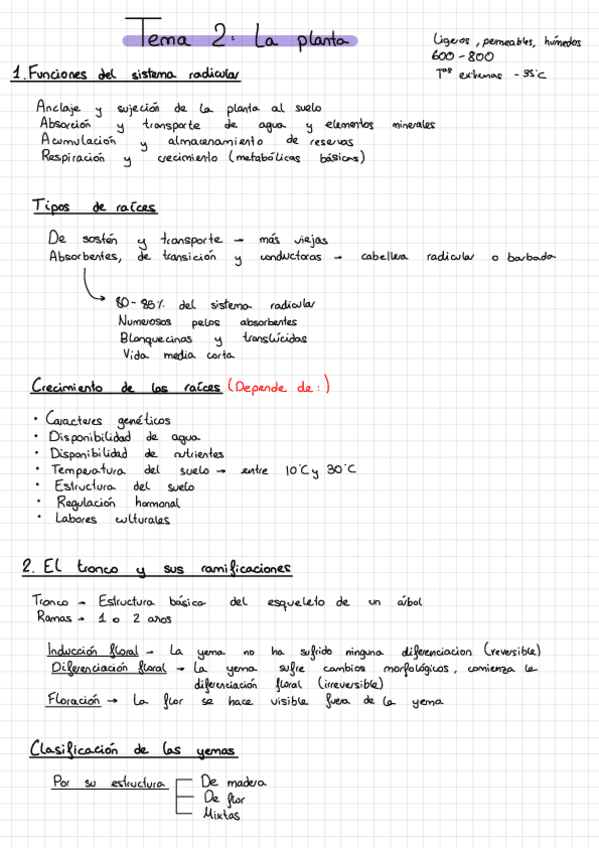 Tema 2: La planta
Ligeros, permeables, húmedos
600-800
Tªs extremas -35°C
1. Funciones del sistema radicular
Anclaje y sujeción de la planta al suelo
Absorción y transporte de agua y elementos minerales
Acumulación y almacenamiento de reservas
Respiración y crecimiento (metabólicas básicas)
Tipos de raíces
De sostén y transporte → más viejas
Absorbentes, de transición y conductoras → cabellera radicular o barbada
80-85% del sistema radicular
Numerosos pelos absorbentes
Blanquecinas y translúcidas
Vida media corta
Crecimiento de las raíces (Depende de:)
• Caracteres genéticos
• Disponibilidad de agua
• Disponibilidad de nutrientes
• Temperatura del suelo → entre 10°C y 30°C
• Estructura del suelo
• Regulación hormonal
• Labores culturales
2. El tronco y sus ramificaciones
Tronco → Estructura básica del esqueleto de un árbol
Ramas → 1 o 2 años
Inducción floral → La yema no ha sufrido ninguna diferenciacion (reversible)
Diferenciación floral → La yema sufre cambios morfológicos, comienza la
diferenciación floral (irreversible)
Floración → La flor se hace visible fuera de la yema
Clasificación de las yemas
Por su estructura
De madera
De flor
Mixtas